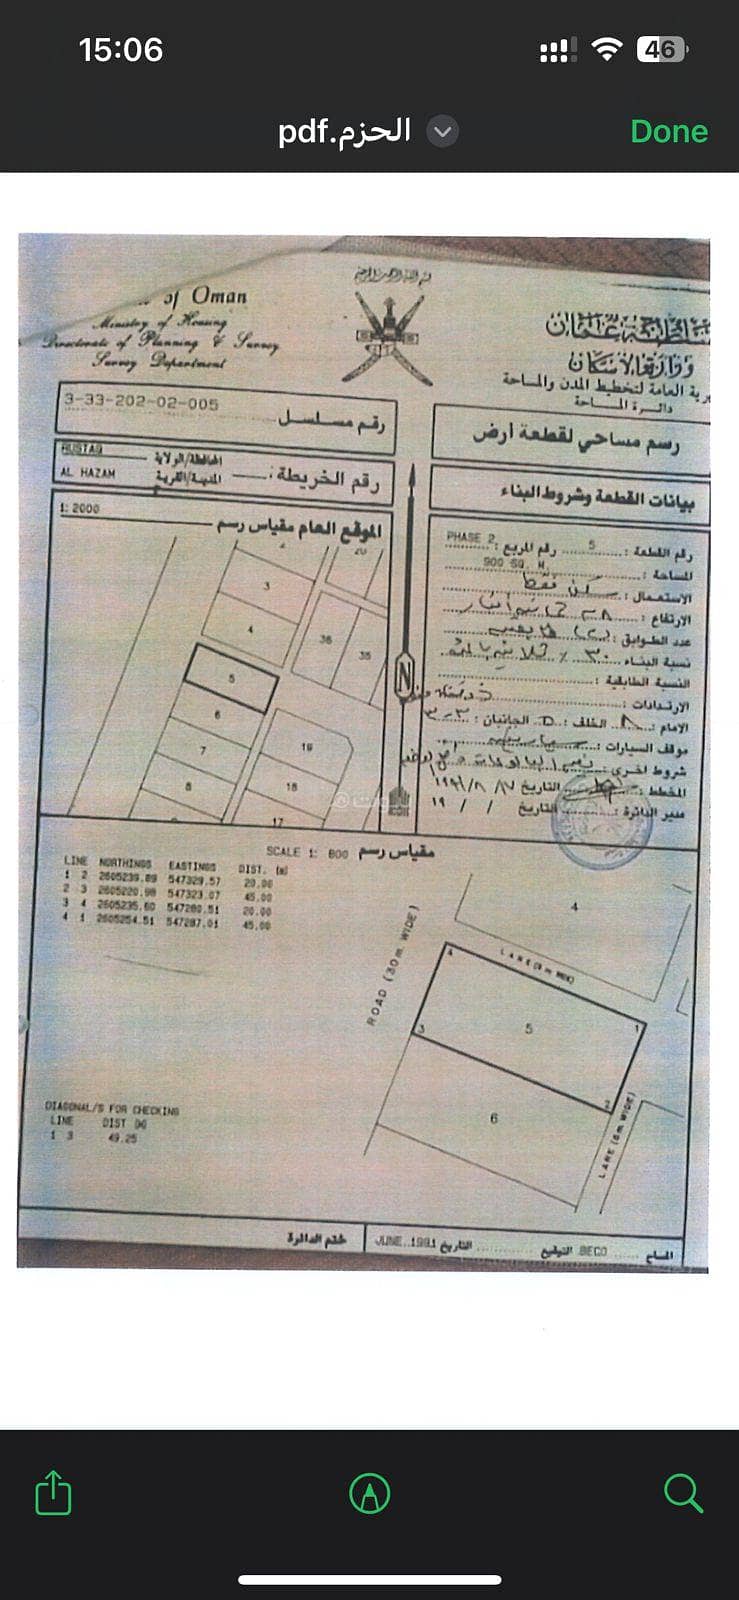 15:06
46
الحزم.pdf
Done
of Oman
Ministry of Housing
Directorate of Planning & Survey
Survey Department
سلطنة عمان
وزارة الإسكان
العامة لتخطيط المدن والمساحة
دائرة المساحة
3-33-202-02-005
رقم مسلسل
رسم مساحي لقطعة أرض
RUSTAQ
المحافظة/الولاية
AL HAZAM
المدينة/القرية
رقم الخريطة :
بيانات القطعة وشروط البناء
1: 2000
الموقع العام مقياس رسم
رقم القطعة : 5 رقم المربع : PHASE 2
المساحة : 900 SQ. M.
الاستعمال : سكن فقط
الارتفاع :
عدد الطوابق : (٢) طابقين
نسبة البناء ٣٠ ٪
النسبة الطابقية :
الارتدادات :
الامام : الخلف : الجانبان :
موقف السيارات :
شروط اخرى :
المخطط : التاريخ
مدير الدائرة : التاريخ / / ١٩
20
3
4
36
35
5
6
7
8
19
18
17
N
SCALE 1: 800 مقياس رسم
LINE NORTHINGS EASTINGS DIST. (m)
1 2 2605239.89 547329.57 20.00
2 3 2605220.98 547323.07 45.00
3 4 2605235.60 547280.51 20.00
4 1 2605254.51 547287.01 45.00
ROAD (30m. WIDE)
4
LANE
4
5
1
3
2
6
LANE (6m. WIDE)
DIAGONAL/S FOR CHECKING
LINE DIST (m)
1 3 49.25
ختم الدائرة
التاريخ JUNE. 1991
التوقيع
المساح BECO